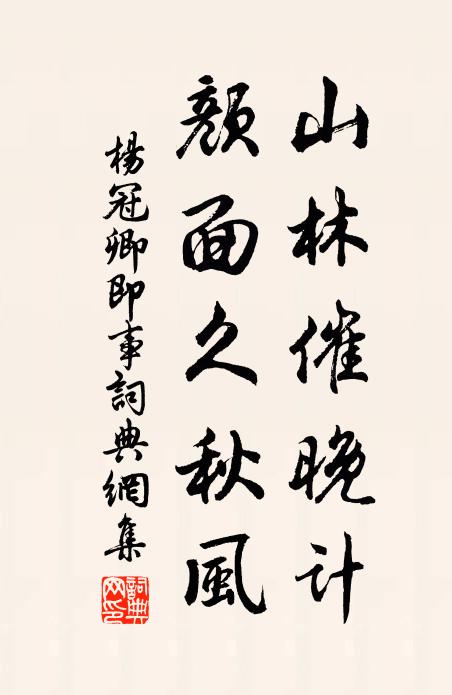 山林催晚计
颜面久秋風
楊冠卿即事詞典網集
詞典网印